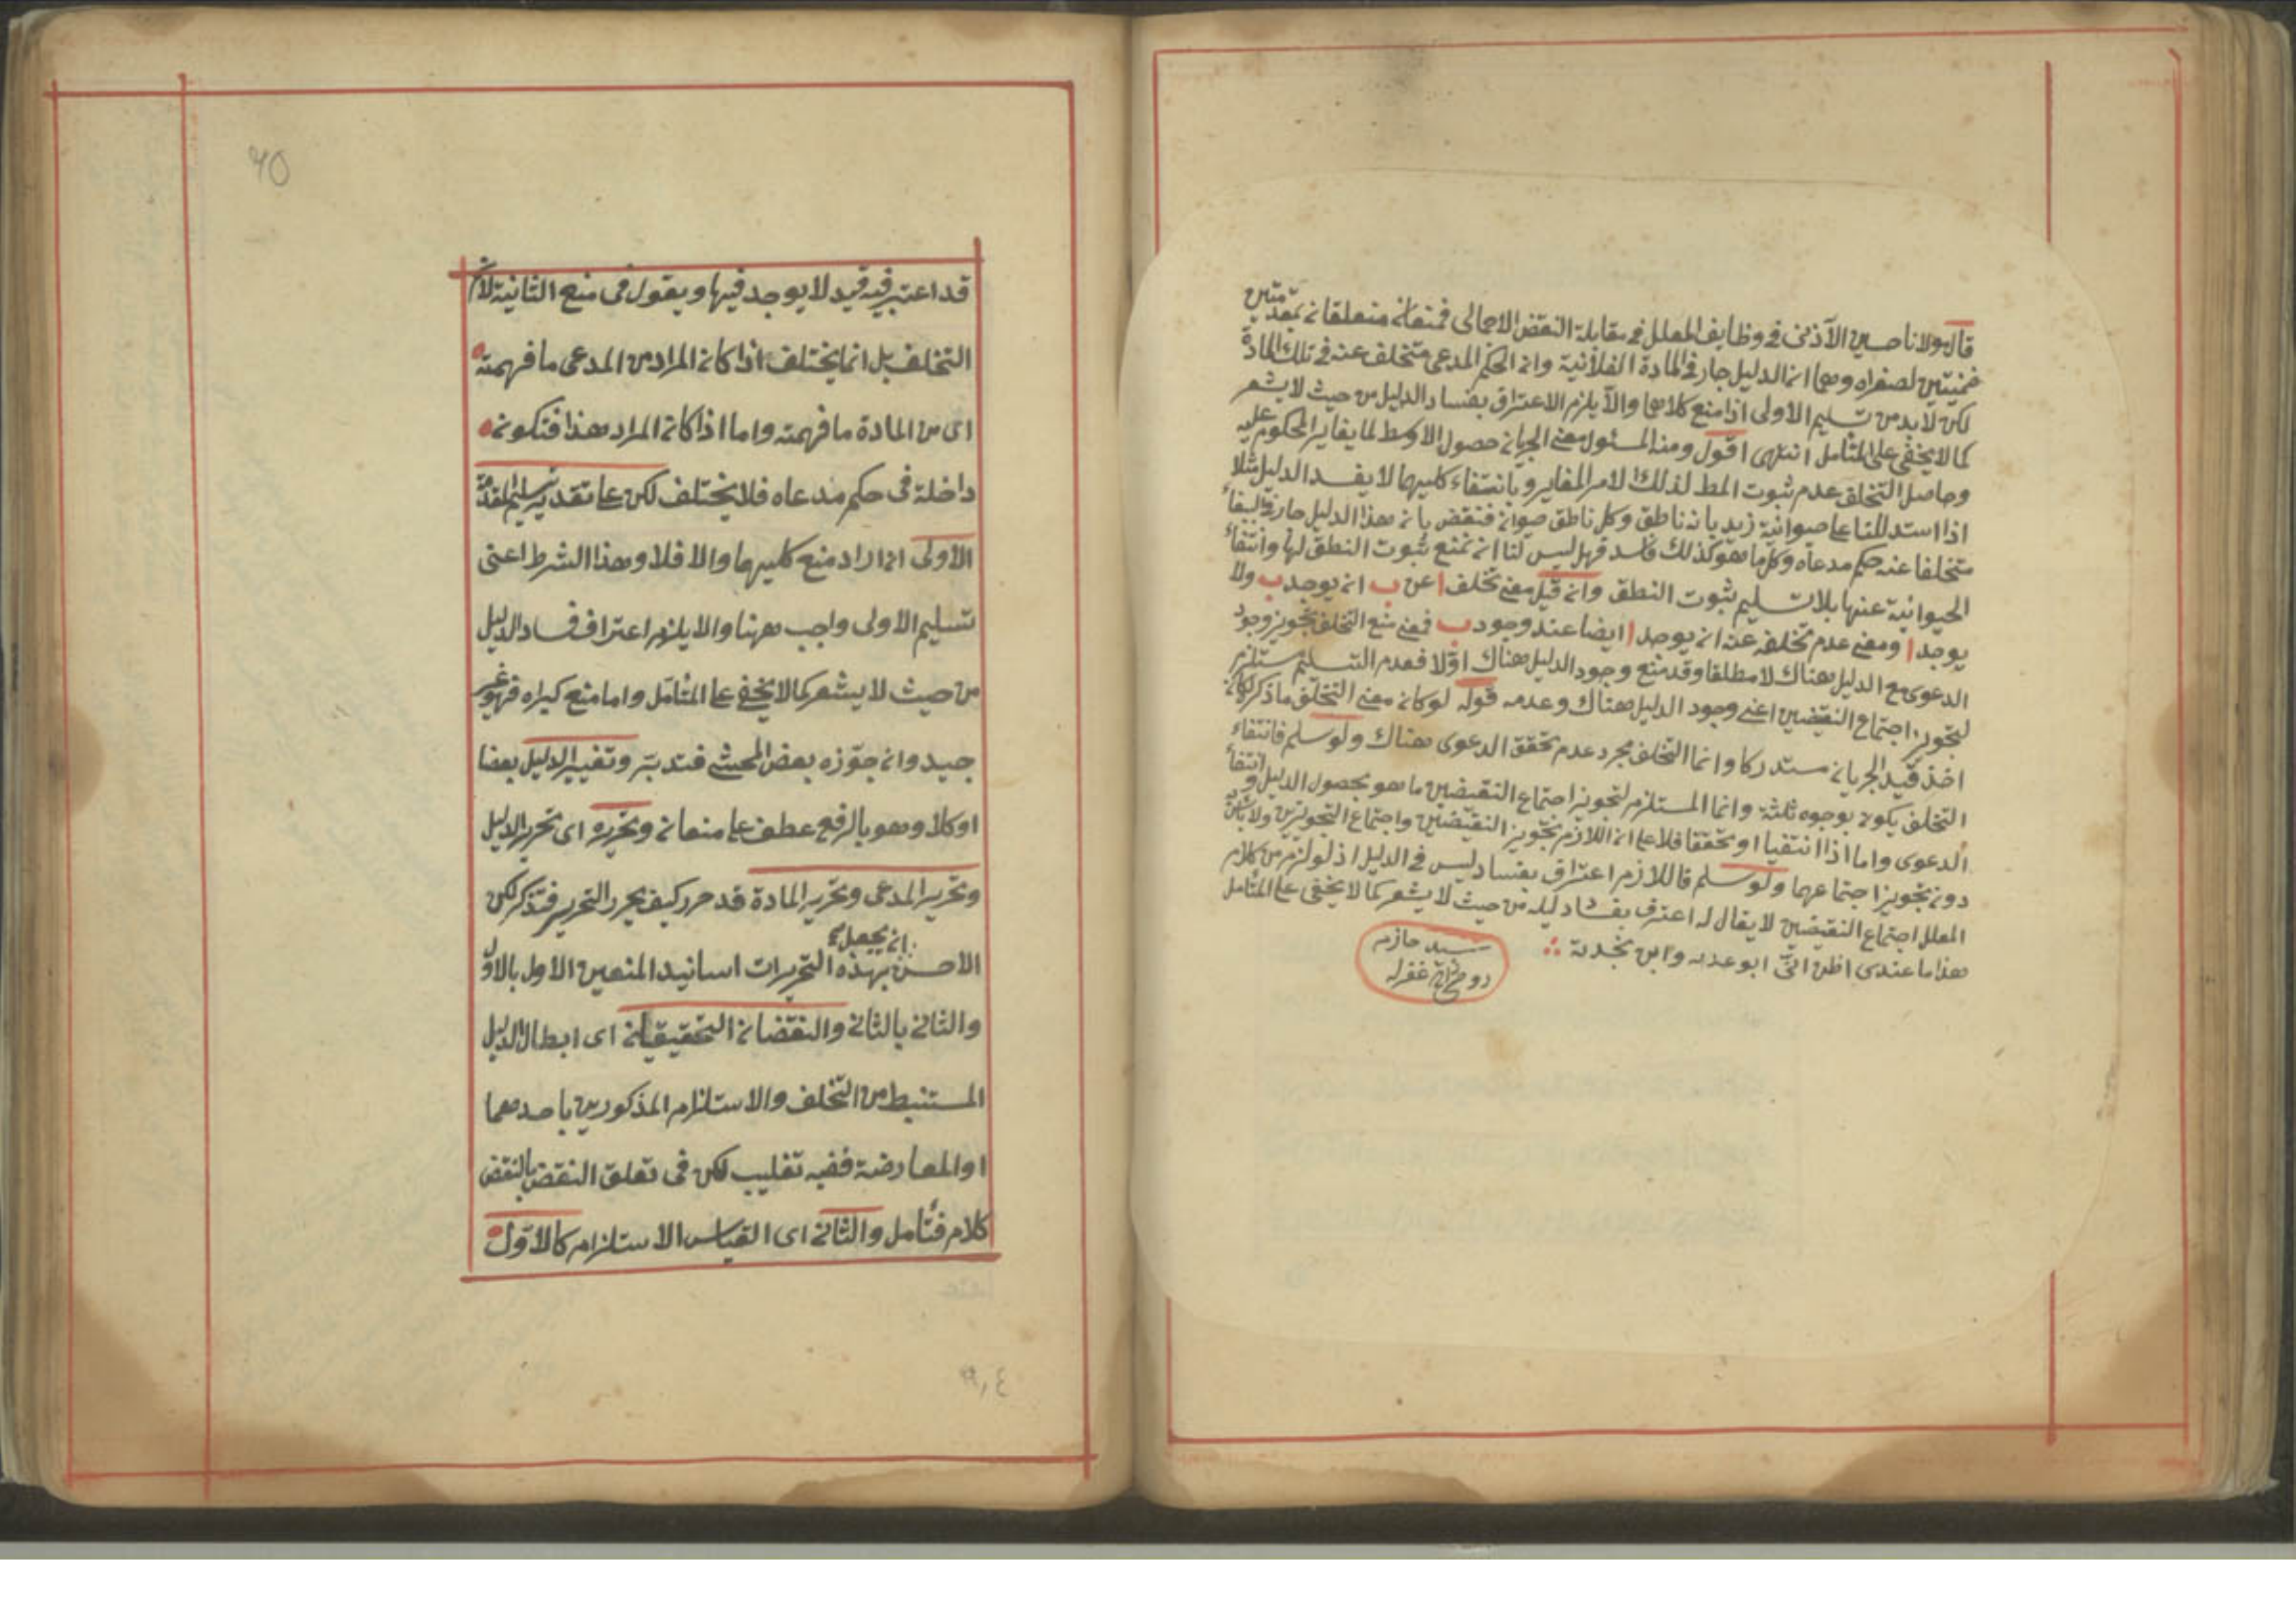 قال مولانا حسين الآذنى فى وظايف المعلل فى مقابلة النقض الاجمالى فمنعان متعلقان بمقدمتين
ضمنيتين لصغراه وهما ان الدليل جار فى المادة الفلانية وان الحكم المدعى متخلف عنه فى تلك المادة
لكن لا بد من تسليم الاولى اذا منع كلاهما والا يلزم الاعتراف بفساد الدليل من حيث لا يشعر
كما لا يخفى على المتأمل انتهى اقول ومنه المسئول معنى الجريان حصول الاوسط لما يغاير المحكوم عليه
وحاصل التخلف عدم ثبوت المط لذلك الامر المغاير وبانتفاء كليهما لا يفسد الدليل مثلا
اذا استدللنا على حيوانية زيد بانه ناطق وكل ناطق حيوان فنقض بان هذا الدليل جار فى
متخلفا عنه حكم مدعاه وكل ما هو كذلك فاسد فهل ليس لنا ان نمنع ثبوت النطق لها وانتفاء
الحيوانية عنها بلا تسليم ثبوت النطق وان قيل معنى تخلف ا عن ب ان يوجد ب ولا
يوجد ا ومعنى عدم تخلفه عنه ان يوجد ا ايضا عند وجود ب فمعنى منع التخلف تجويز وجود
الدعوى مع الدليل هناك لا مطلقا وقد منع وجود الدليل هناك اولا فعدم التسليم مستلزم
لتجويز اجتماع النقيضين اعنى وجود الدليل هناك وعدمه قوله لو كان معنى التخلف ما ذكر لكان
اخذ قيد الجريان مستدركا وانما التخلف مجرد عدم تحقق الدعوى هناك ولو سلم فانتفاء
التخلف يكون بوجوه ثلثة وانما المستلزم لتجويز اجتماع النقيضين ما هو بحصول الدليل وانتفاء
الدعوى واما اذا انتفيا او تحققا فلا على ان اللازم تجويز النقيضين واجتماع التجويزين ولا بأس
دون تجويز اجتماعهما ولو سلم فاللازم اعتراف بفساد ليس فى الدليل اذ لو لزم من كلام
المعلل اجتماع النقيضين لا يقال له اعترف بفساد دليله من حيث لا يشعر كما لا يخفى على المتأمل
هذا ما عندى اظن انى ابو عذره وابن بجدته
سيد حازم
غفر له
٦٥
قد اعتبر فيه قيد لا يوجد فيها ويقول فى منع الثانية لانم
التخلف بل انما يختلف اذا كان المراد من المدعى ما فهمته
اى من المادة ما فهمته واما اذا كان المراد هذا فتكون
داخلة فى حكم مدعاه فلا يختلف لكن على تقدير تسليم المقدمة
الاولى ان اراد منع كليهما والا فلا وهذا الشرط اعنى
تسليم الاولى واجب ههنا والا يلزم اعتراف فساد الدليل
من حيث لا يشعر كما لا يخفى على المتأمل واما منع كبراه فهو غير
جيد وان جوّزه بعض المحشى فتدبر وتغيير الدليل بعضا
او كلا وهو بالرفع عطف على منعان وتحريره اى تحرير الدليل
وتحرير المدعى وتحرير المادة قد حرر كيف يحرر التحرير فتذكر لكن
الاحسن ان يجعل بهذه التحريرات اسانيد المنعين الاول بالاول
والثانى بالثانى والنقضان التحقيقيان اى ابطال الدليل
المستنبط من التخلف والاستلزام المذكورين باحدهما
او المعارضة ففيه تغليب لكن فى تعلق النقض بالنقض
كلام فتأمل والثانى اى القياس الاستلزام كالاول